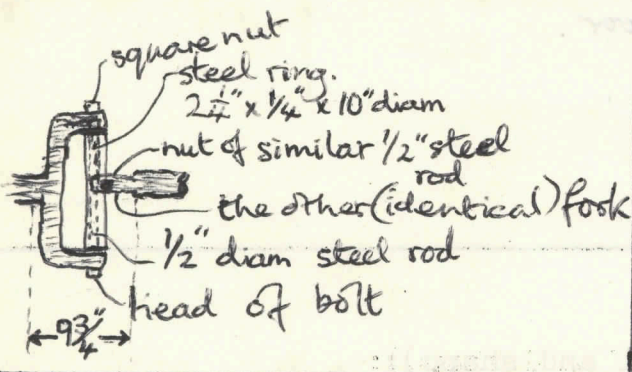 square nut
steel ring.
2 1/4" x 1/4" x 10" diam
nut of similar 1/2" steel
rod
the other (identical) fork
1/2" diam steel rod
head of bolt
9 3/4"